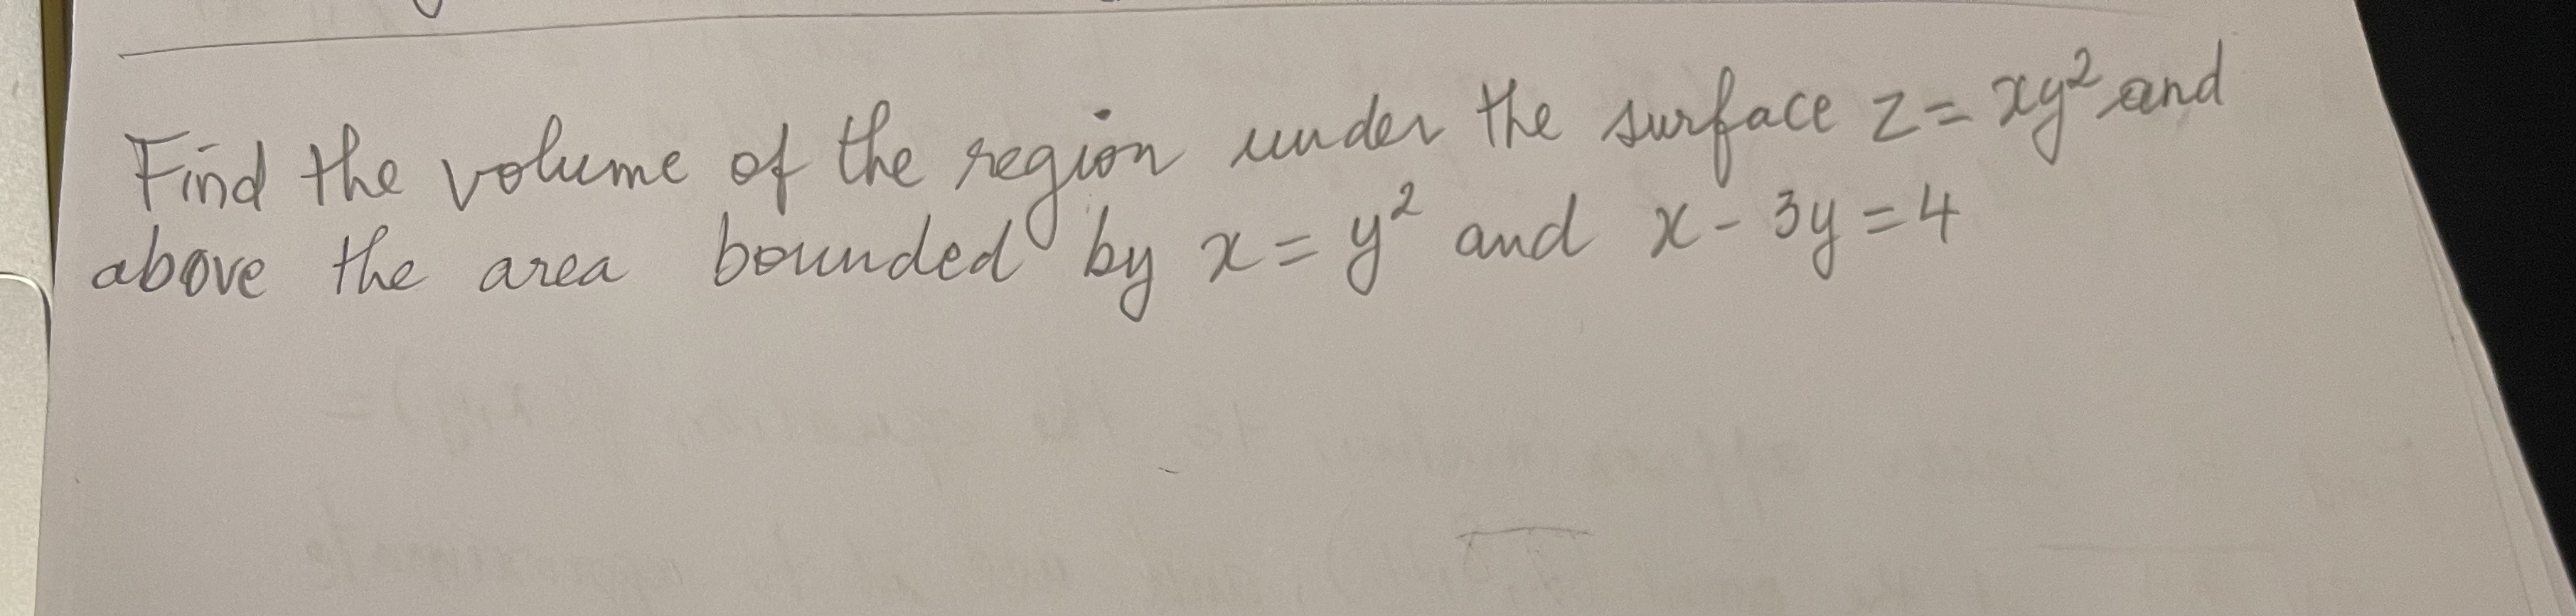 Find the volume of the region under the surface z = xy² and
above the area bounded by x = y² and x - 3y = 4